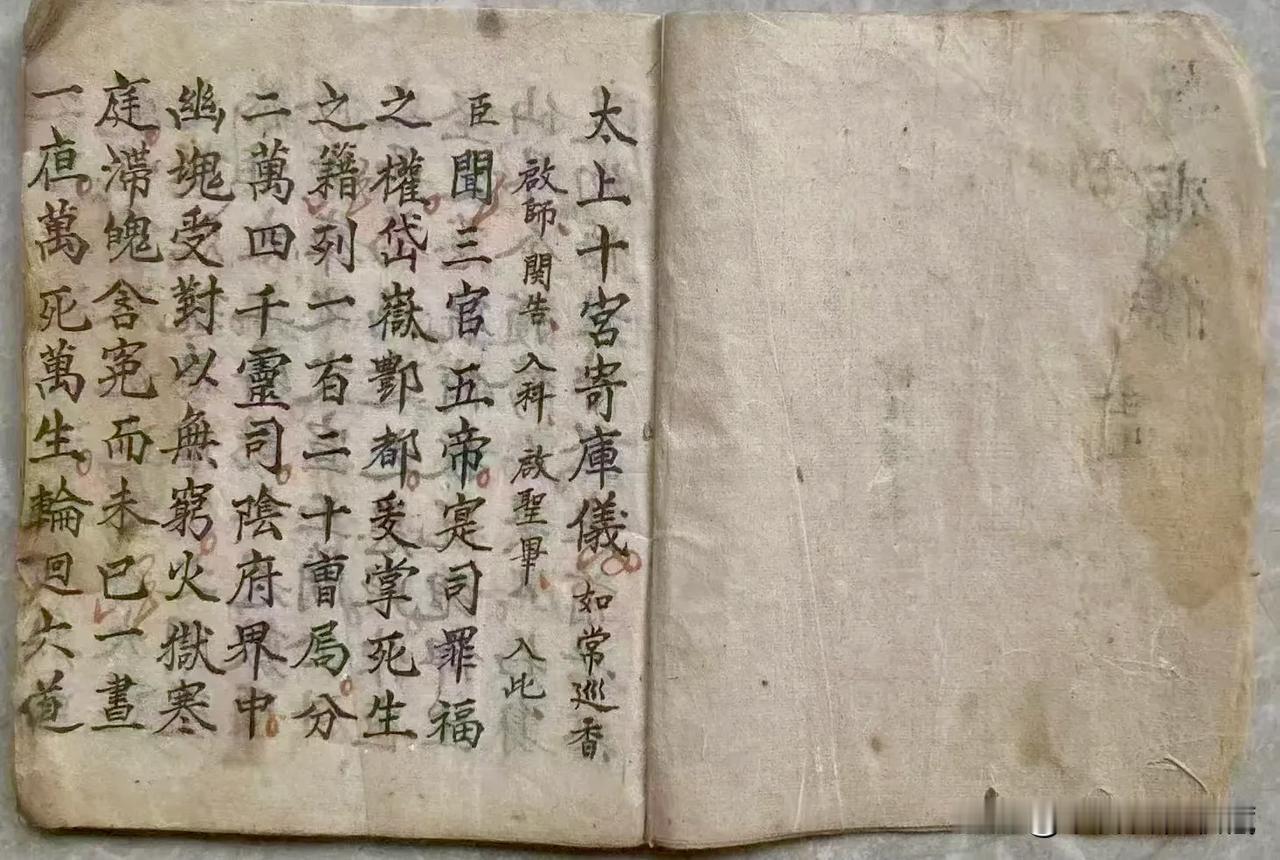 太上十宮寄庫儀 如常巡香
啟師 関告 入科 啟聖畢 入此
臣聞三官五帝寔司罪福
之權岱嶽酆都爰掌死生
之籍列一百二十曹局分
二萬四千靈司陰府界中
幽塊受對以無窮火獄寒
庭滯魄含寃而未已一晝
一夜萬死萬生輪迴六道